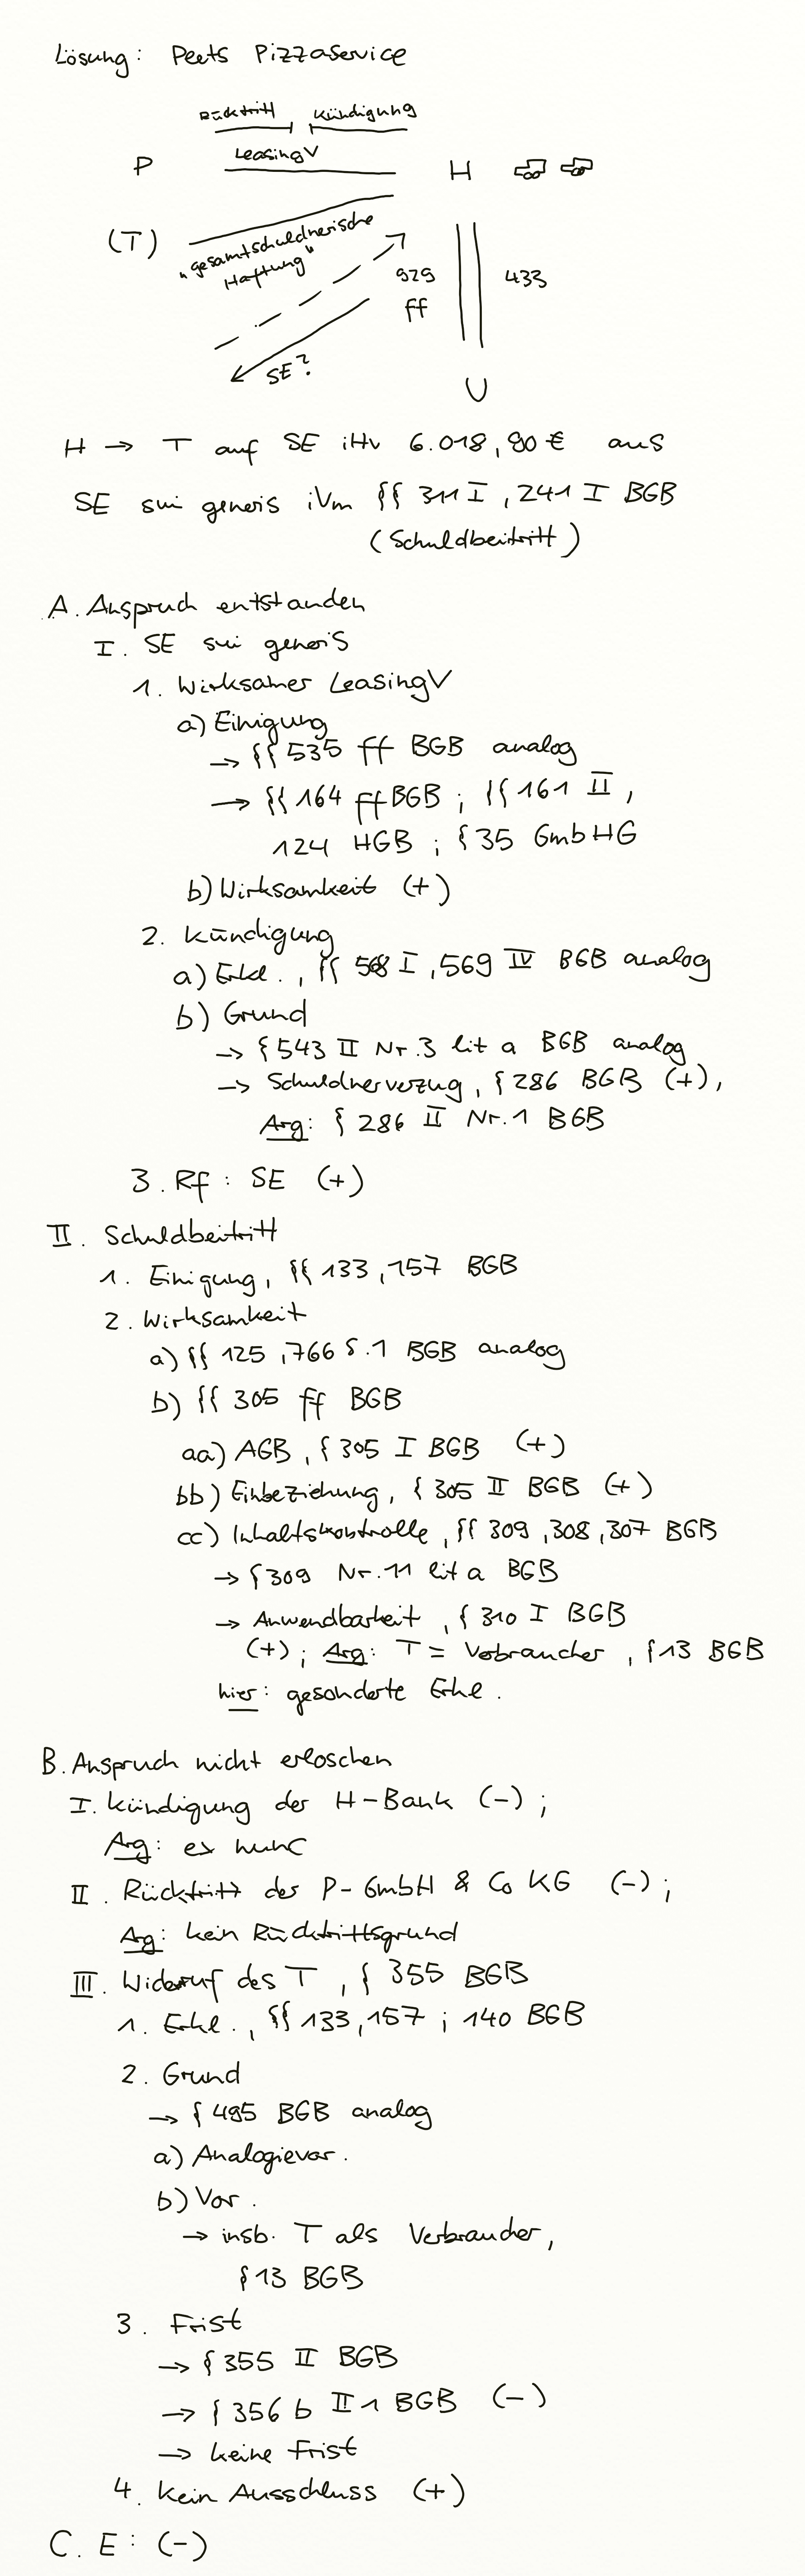 Lösung: Peets Pizzaservice
Rücktritt Kündigung
LeasingV
P H
(T)
"gesamtschuldnerische
Haftung"
929
ff
433
SE?
U
H → T auf SE iHv 6.018,90 € aus
SE sui generis iVm §§ 311 I, 241 I BGB
(Schuldbeitritt)
A. Anspruch entstanden
I. SE sui generis
1. Wirksamer LeasingV
a) Einigung
→ §§ 535 ff BGB analog
→ §§ 164 ff BGB ; §§ 161 II,
124 HGB ; § 35 GmbHG
b) Wirksamkeit (+)
2. Kündigung
a) Erkl., §§ 568 I, 569 IV BGB analog
b) Grund
→ § 543 II Nr. 3 lit a BGB analog
→ Schuldnerverzug, § 286 BGB (+),
Arg: § 286 II Nr. 1 BGB
3. Rf: SE (+)
II. Schuldbeitritt
1. Einigung, §§ 133, 157 BGB
2. Wirksamkeit
a) §§ 125, 766 S. 1 BGB analog
b) §§ 305 ff BGB
aa) AGB, § 305 I BGB (+)
bb) Einbeziehung, § 305 II BGB (+)
cc) Inhaltskontrolle, §§ 309, 308, 307 BGB
→ § 309 Nr. 11 lit a BGB
→ Anwendbarkeit, § 310 I BGB
(+); Arg: T = Verbraucher, § 13 BGB
hier: gesonderte Erkl.
B. Anspruch nicht erloschen
I. Kündigung der H-Bank (-);
Arg: ex nunc
II. Rücktritt der P-GmbH & Co KG (-);
Arg: kein Rücktrittsgrund
III. Widerruf des T, § 355 BGB
1. Erkl., §§ 133, 157 ; 140 BGB
2. Grund
→ § 495 BGB analog
a) Analogievor.
b) Vor.
→ insb. T als Verbraucher,
§ 13 BGB
3. Frist
→ § 355 II BGB
→ § 356 b II 1 BGB (-)
→ keine Frist
4. Kein Ausschluss (+)
C. E: (-)